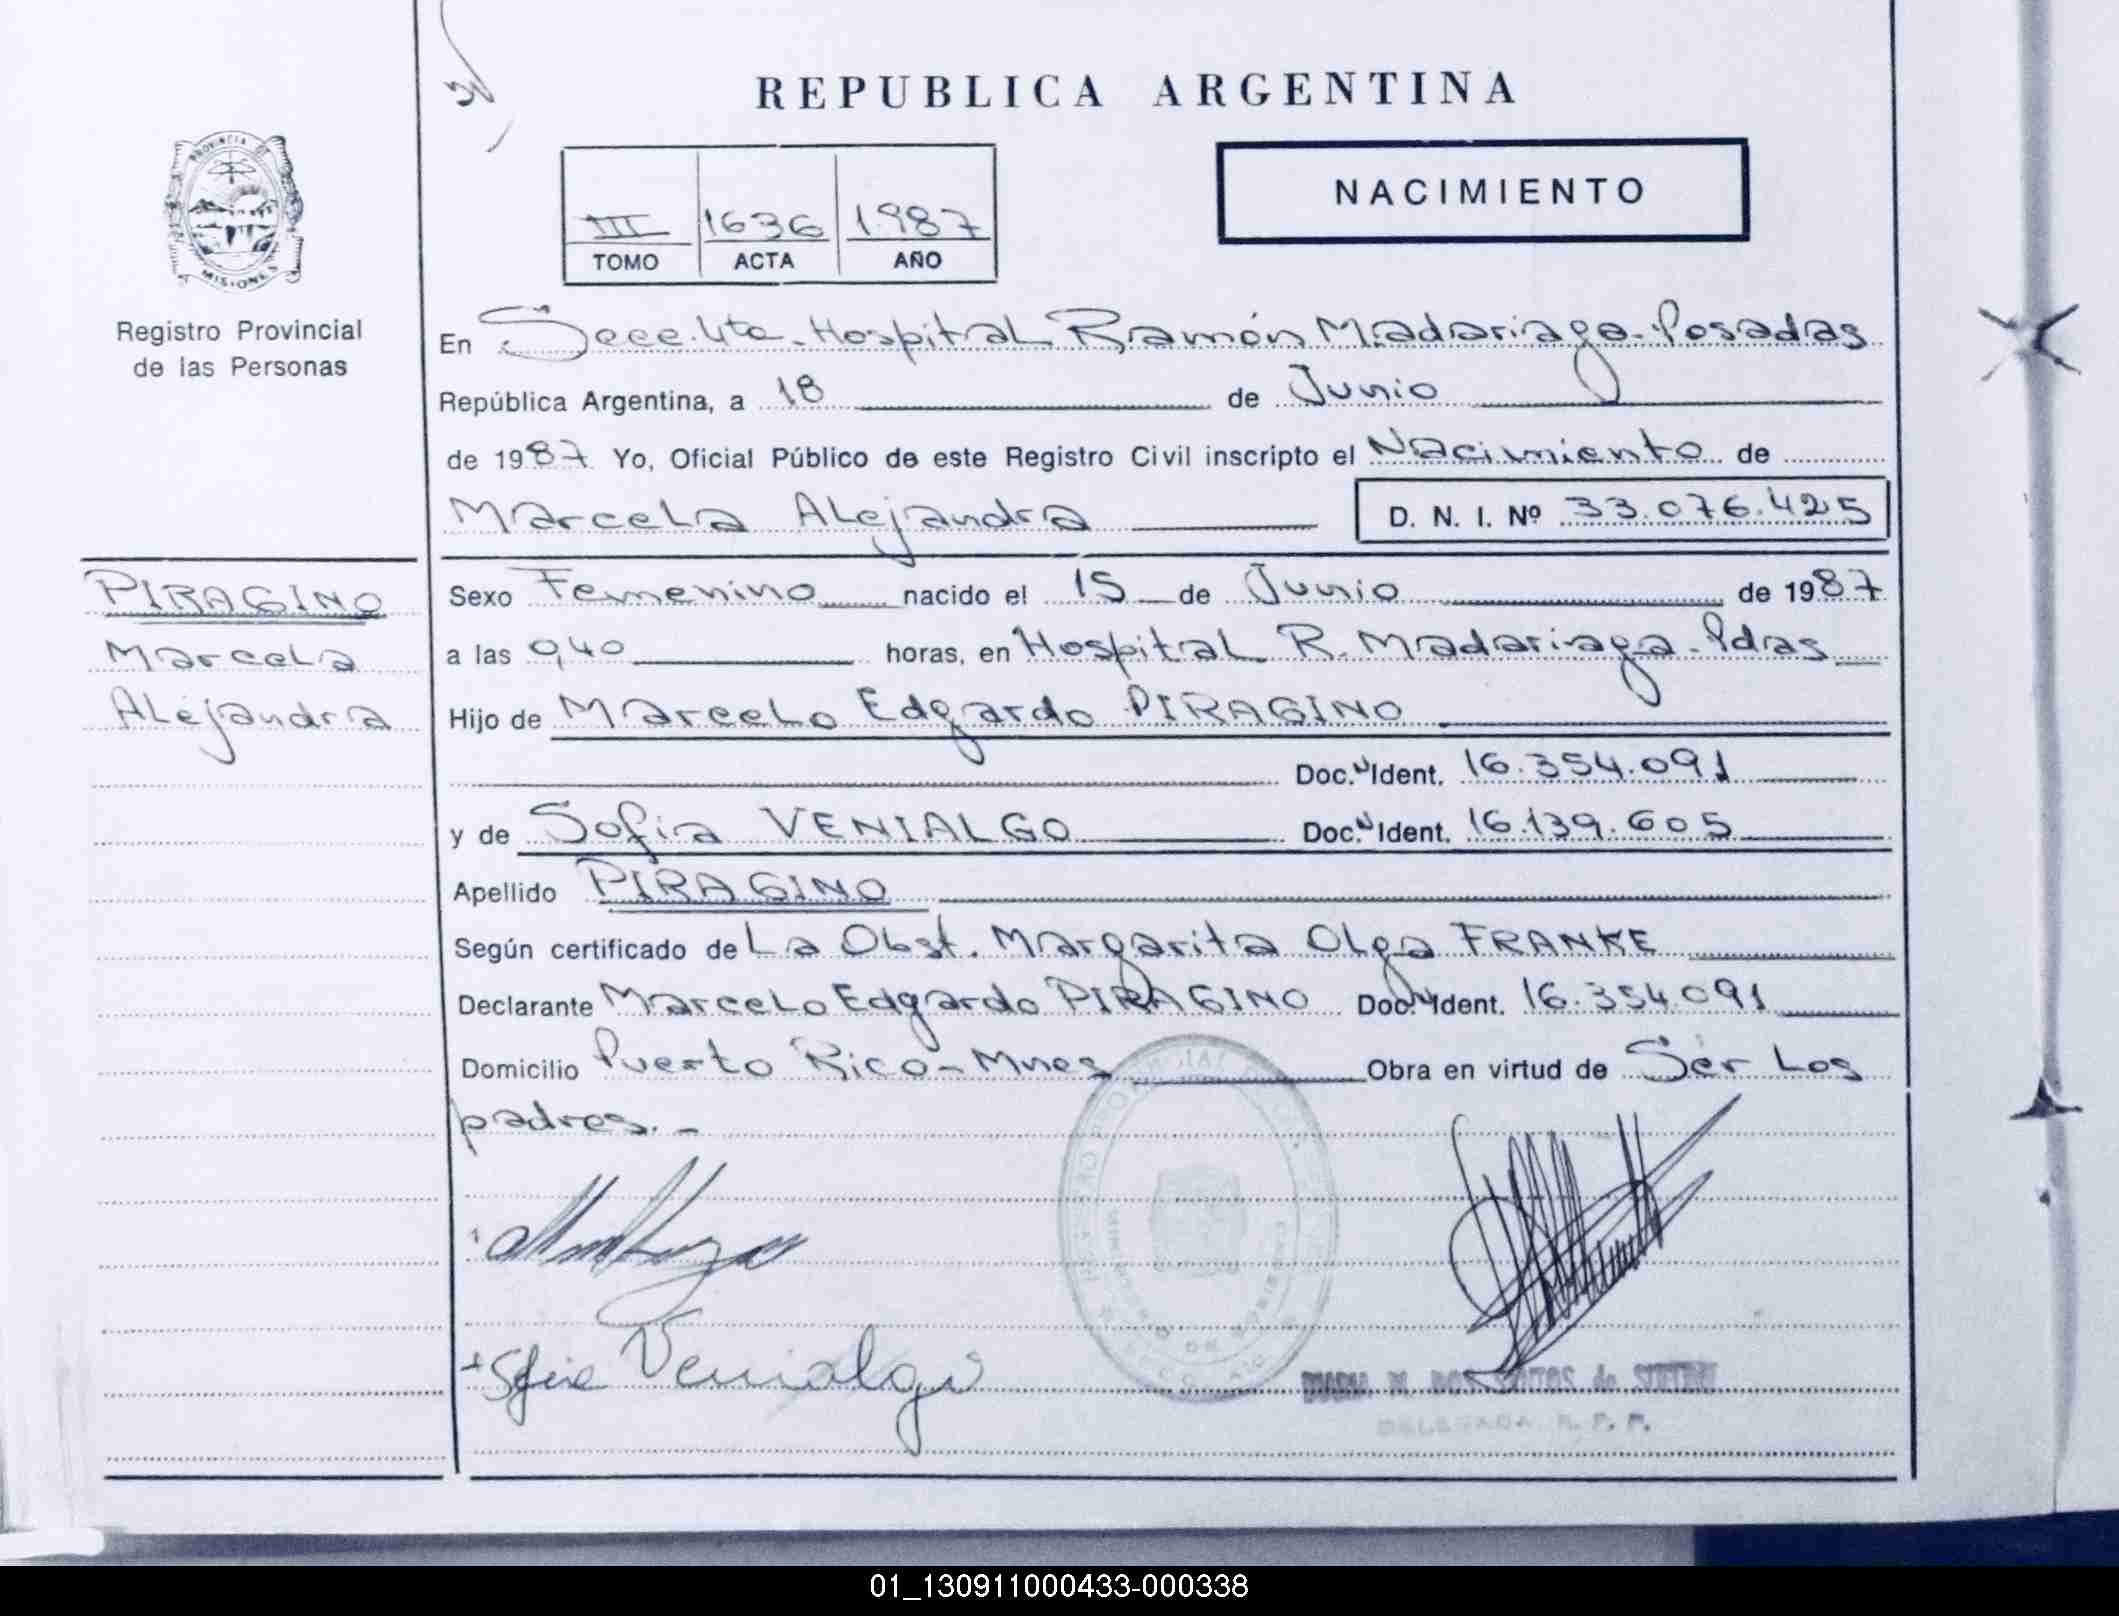 REPUBLICA ARGENTINA
PROVINCIA DE
MISIONES
Registro Provincial
de las Personas
III 1636 1987
TOMO ACTA AÑO
NACIMIENTO
En Secc. 4ta. Hospital Ramón Madariaga - Posadas
República Argentina, a 18 de Junio
de 1987 Yo, Oficial Público de este Registro Civil inscripto el Nacimiento de
Marcela Alejandra D. N. I. Nº 33.076.425
PIRAGINO
Marcela
Alejandra
Sexo Femenino nacido el 15 de Junio de 1987
a las 9,40 horas, en Hospital R. Madariaga - Pdas
Hijo de Marcelo Edgardo PIRAGINO
Doc. Ident. 16.354.091
y de Sofia VENIALGO Doc. Ident. 16.139.605
Apellido PIRAGINO
Según certificado de La Obst. Margarita Olga FRANKE
Declarante Marcelo Edgardo PIRAGINO Doc. Ident. 16.354.091
Domicilio Puerto Rico - Mnes Obra en virtud de Ser Los
padres. -
Sofia Venialgo
DELEGADA R. P. P.
01_130911000433-000338